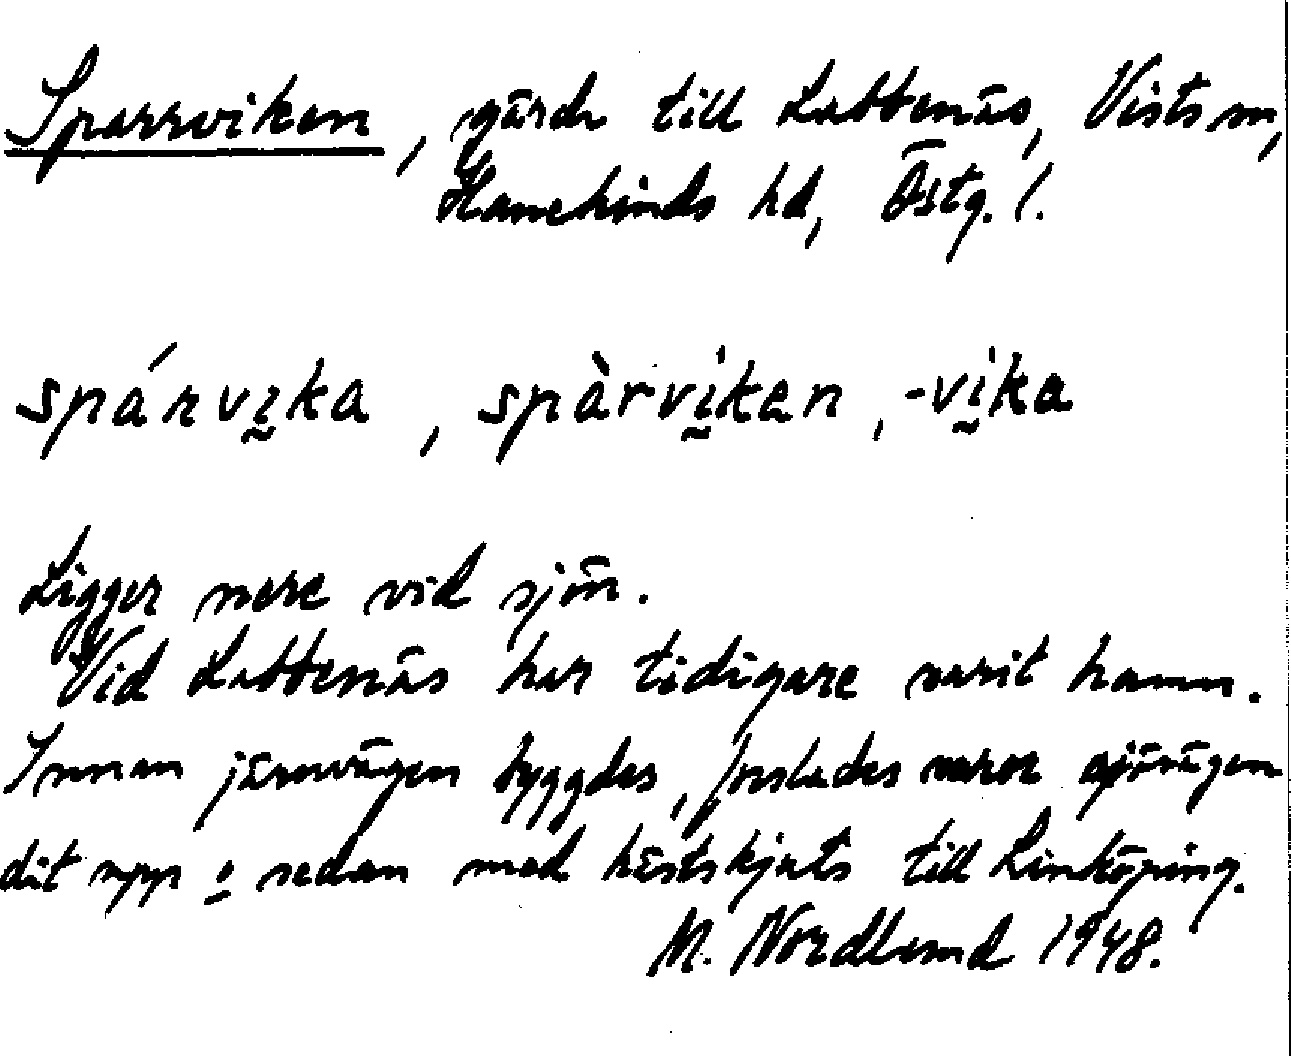 Sparrviken, gård till Labbenäs, Vists sn,
Hanekinds hd, Östg. l.
spárvı̰ka, spàrvḭkan, -vḭka
Ligger nere vid sjön.
Vid Labbenäs har tidigare varit hamn.
Innan järnvägen byggdes, forslades varor sjövägen
dit upp o sedan med hästskjuts till Linköping.
M. Nordlund 1948.